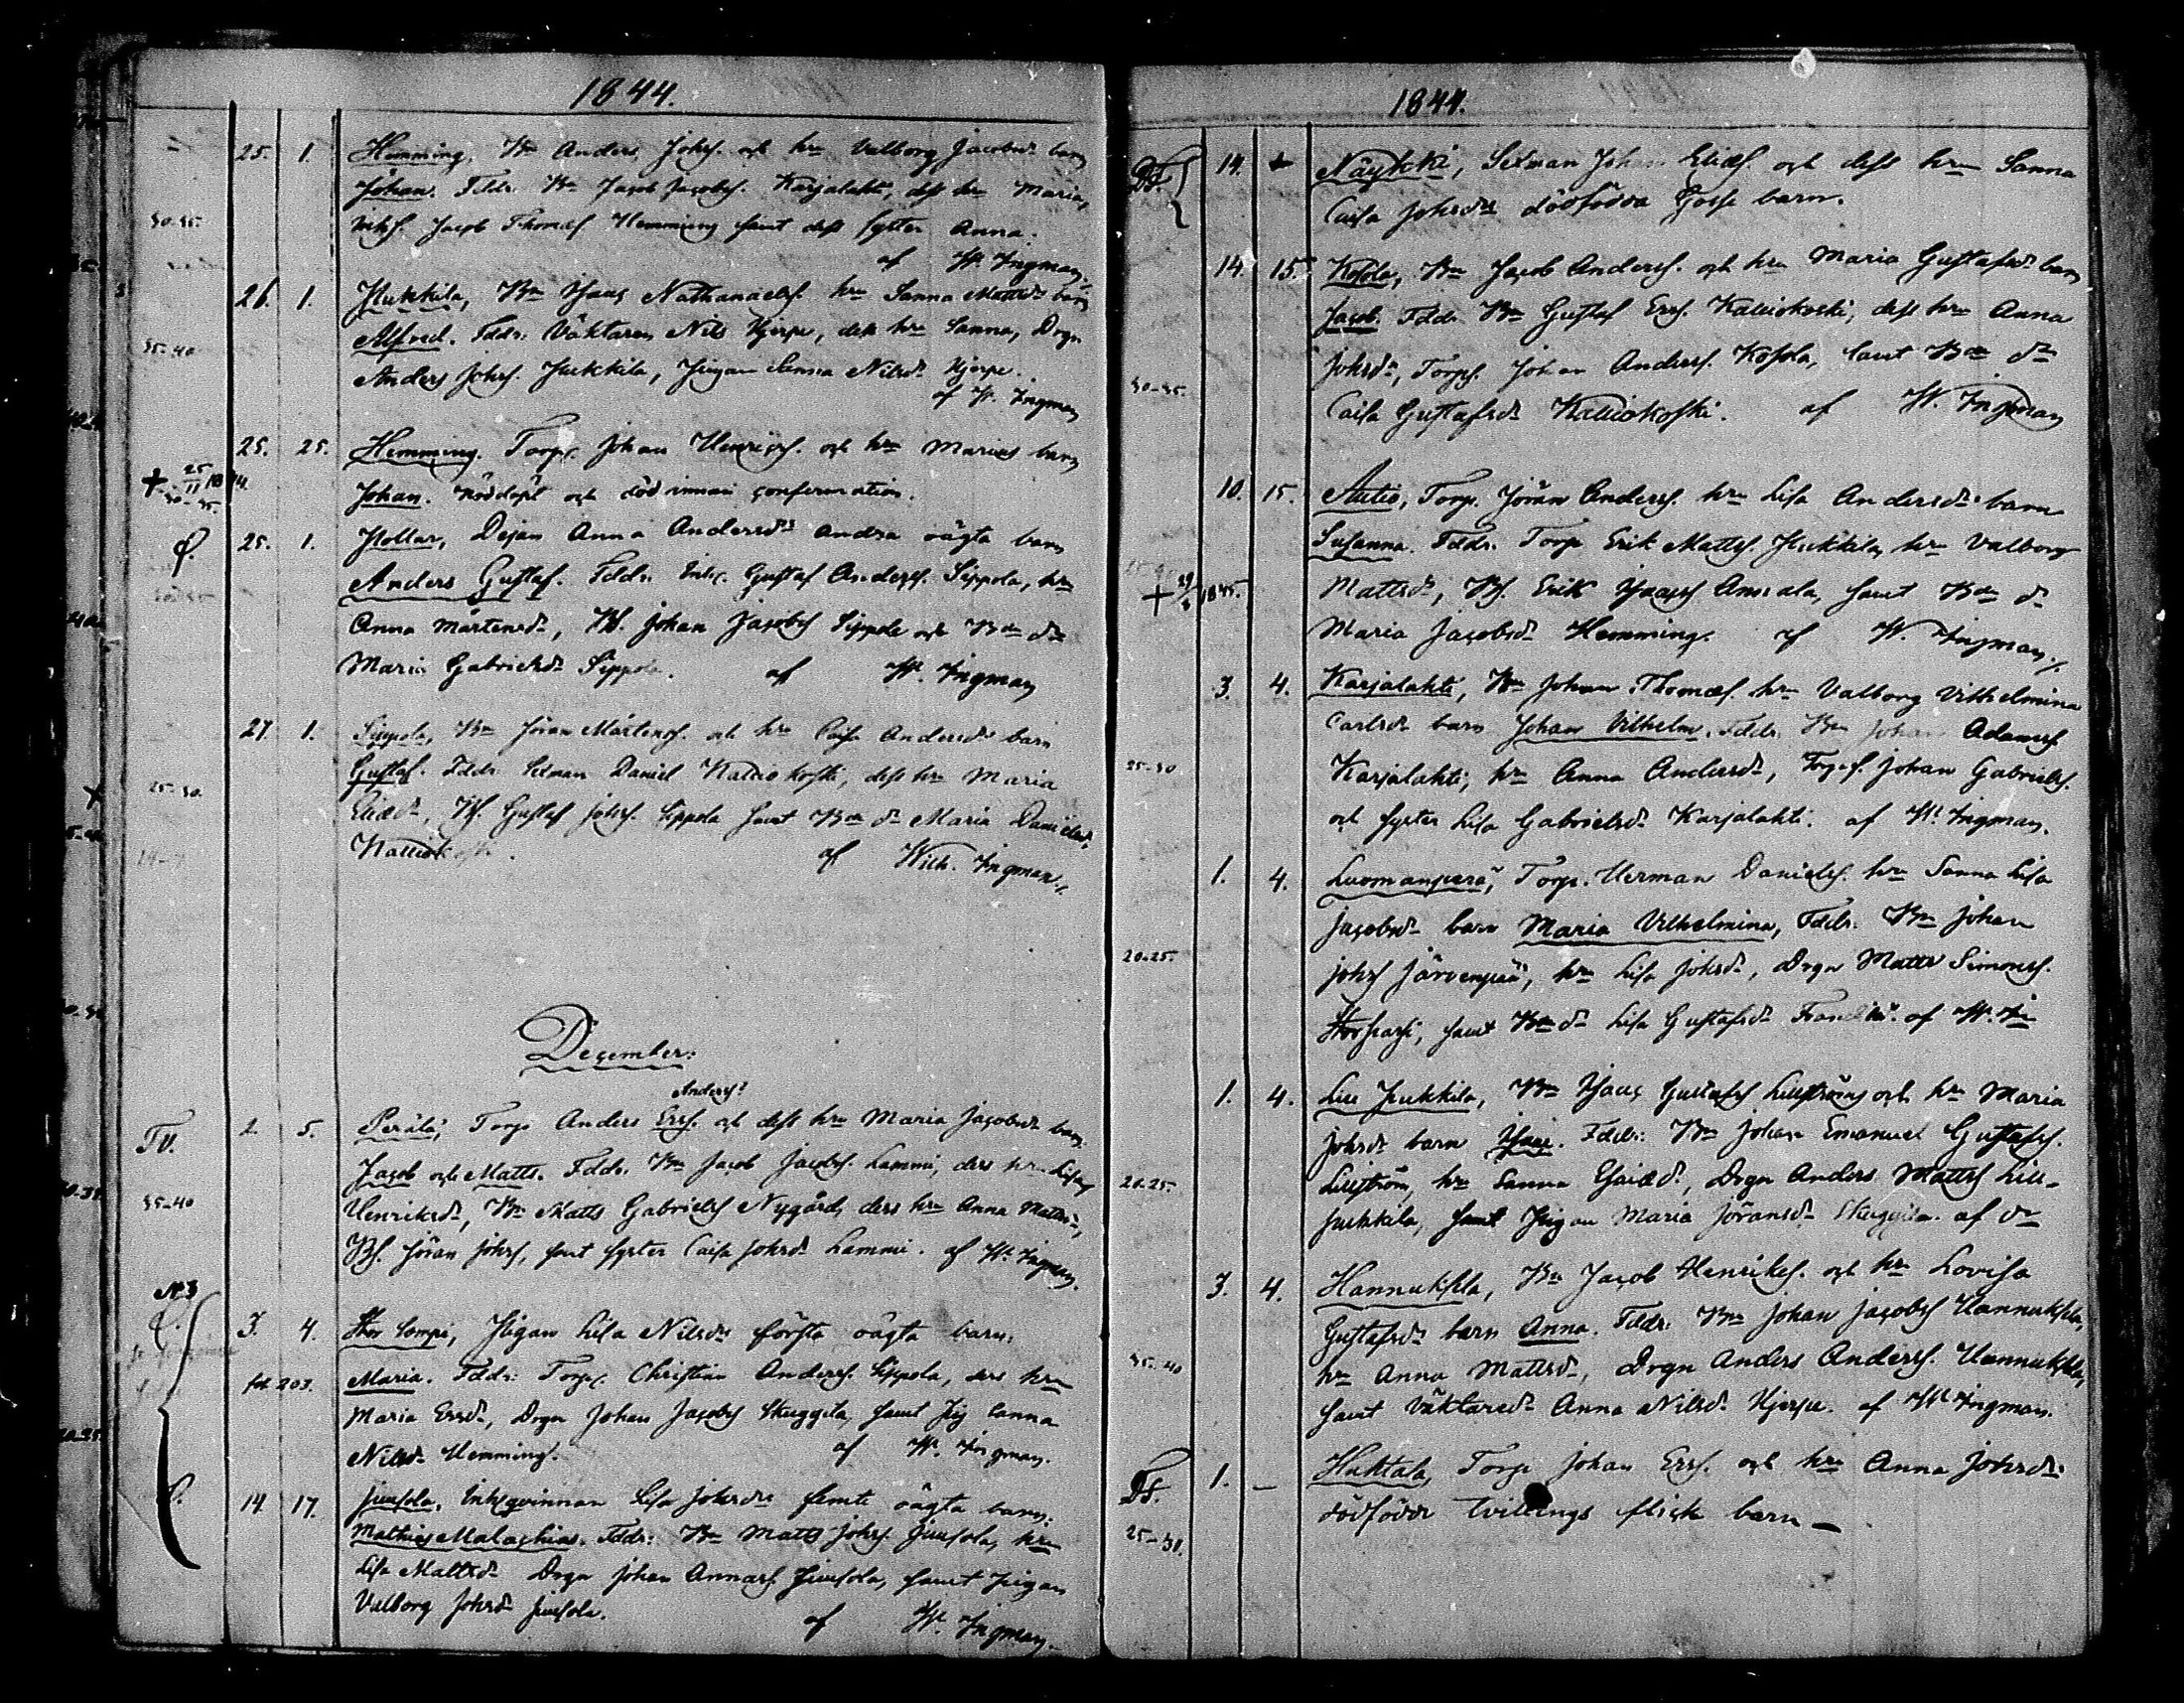 1844.
25. 1. Hemming, Bn Anders Johss. och hru Valborg Jacobsds barn
Johan. Fddr. Bn Jacob Jacobss. Karjalahti, dess hru Maria,
30-35. Inhs. Jacob Thomæs. Hemming samt dess syster Anna.
af W. Ingman
26. 1. Jukkila, Bn Isaac Nathanaelss. hru Sanna Mattsds barn
35-40 Alfred. Fddr: Väktaren Nils Hjerpe, dess hru Sanna, Drgn
Anders Johss. Jukkila, Pigan Sanna Nilsdr Hjerpe.
af W. Ingman
25. 25. Hemming. Torp. Johan Henricss. och hru Marias barn
+ 25/11 1844. Johan. Nöddöpt och död innan confirmation.
30-35.
25. 1. Hollar, Dejan Anna Andersds andra oägta barn
Anders Gustaf. Fddr. Inhs. Gustaf Anderss. Sippola, hru
Anna Mårtensdr, Bs. Johan Jacobss Sippola och Bde dr
Maria Gabrielsdr Sippola. af W. Ingman
27. 1. Sippola, Bn Jöran Mårtenss. och hru Caisa Andersds barn
25-30. Gustaf. Fddr. Sexman Daniel Kalliokoski, dess hru Maria
Eliædr, Bs. Gustaf Johss. Sippola samt Bde dr Maria Danielsdr
Kalliokoski. af Wilh. Ingman.
December:
Anderss?
TV. 2. 5. Perälä, Torp. Anders Erss. och dess hru Maria Jacobsds barn
Jacob och Matts. Fddr. Bn Jacob Jacobss. Lammi, dess hru Lisa
35-40 Henriksdr, Bn Matts Gabrielss Nygård, dess hru Anna Mattsdr,
Bs. Jöran Johss, samt syster Caisa Johsdr Lammi. af W. Ingman.
N:3
3. 4. Stor Sompi, Pigan Lisa Nilsds första oägta barn:
fol. 203. Maria. Fddr: Torp. Christian Anderss. Sippola, dess hru
Maria Ersdr, Drgn Johan Jacobss Skuggila, samt Pig. Sanna
Nilsdr Hemming. af W. Ingman.
14. 17. Juusola, Inhsqvinnan Lisa Johsds femte oägta barn:
Mathias Malachias. Fddr: Bn Matts Johss. Juusola, hru
Lisa Mattsdr Drgn Johan Annarss. Juusola, samt Pigan
Valborg Johsdr Juusola. af W. Ingman.
1844.
Df. 14. + Näykki, Sexman Johan Eliæs. och dess hru Sanna
Caisa Johsds dödfödda Gosse barn.
14. 15. Kosola, Bn Jacob Anderss. och hru Maria Gustafsds barn
Jacob. Fddr. Bn Gustaf Erss. Kalliokoski, dess hru Anna
30-35. Johsdr, Torps. Johan Anderss. Kosola, samt Bde dr
Caisa Gustafsdr Kalliokoski. af W. Ingman
10. 15. Autio, Torp. Jöran Anderss. hru Lisa Andersds barn
Susanna. Fddr. Torp. Erik Mattss. Jukkila, hru Valborg
+ 1845. Mattsdr, Bs. Erik Isacss Annala, samt Bde dr
Maria Jacobsdr Hemming. af W. Ingman.
3. 4. Karjalahti, Bn Johan Thomæs. hru Valborg Vilhelmina
Carlsds barn Johan Vilhelm. Fddr. Bn Johan Adamss.
25-30 Karjalahti, hru Anna Andersdr, Torps. Johan Gabrielss.
och syster Lisa Gabrielsdr Karjalahti. af W. Ingman.
1. 4. Luomanperä, Torp. Herman Danielss. hru Sanna Lisa
Jacobsds barn Maria Vilhelmina, Fddr. Bn Johan
20-25. Johss Järvenpää, hru Lisa Johsdr, Drgn Matts Simonss.
samt Bde dr Lisa Gustafsdr af W. In
1. 4. Lill Jukkila, Bn Isaac Gustafss Lillström och hru Maria
Johsds barn Isaac. Fddr: Bn Johan Emanuel Gustafss.
20-25. Lillström, hru Sanna Esaiædr, Drgn Anders Mattss Lill-
Jukkila, samt Pigan Maria Jöransdr Skuggila. af dr
3. 4. Hannuksela, Bn Jacob Henrikss. och hru Lovisa
Gustafsds barn Anna. Fddr: Bn Johan Jacobss Hannuksela,
35-40 hru Anna Mattsdr, Drgn Anders Anderss. Hannuksela,
samt Väktaredr Anna Nilsdr Hjerpe. af W. Ingman.
Df. 1. — Huhtala, Torp. Johan Erss. och hru Anna Johsds
25-30. dödfödde tvillings flick barn —